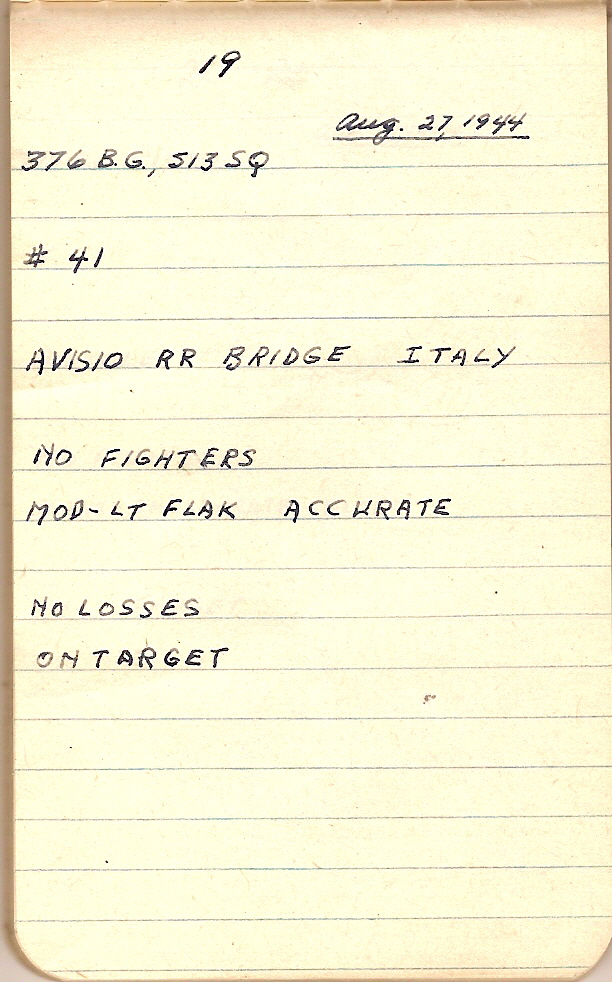 19
Aug. 27, 1944
376 B.G., 513 SQ
# 41
AVISIO RR BRIDGE ITALY
NO FIGHTERS
MOD-LT FLAK ACCURATE
NO LOSSES
ON TARGET